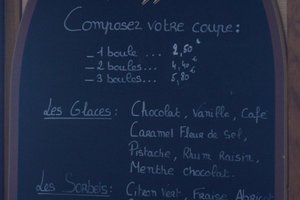 Composez votre coupe:
_ 1 boule ... 2,50
_ 2 boules... 4,40
_ 3 boules... 5,80
Les Glaces: Chocolat, Vanille, Café
Caramel Fleur de sel,
Pistache, Rhum Raisin,
Menthe chocolat.
Les Sorbets: Citron Vert, Fraise, Abricot